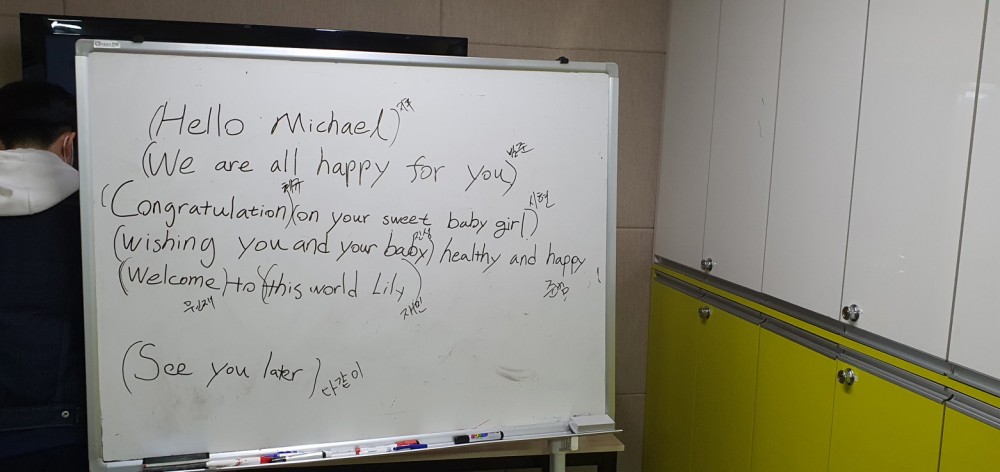 (Hello Michael)
(We are all happy for you)
(Congratulation)(on your sweet baby girl)
(wishing you and your baby) healthy and happy
(Welcome) to (this world Lily)
(See you later) 다같이